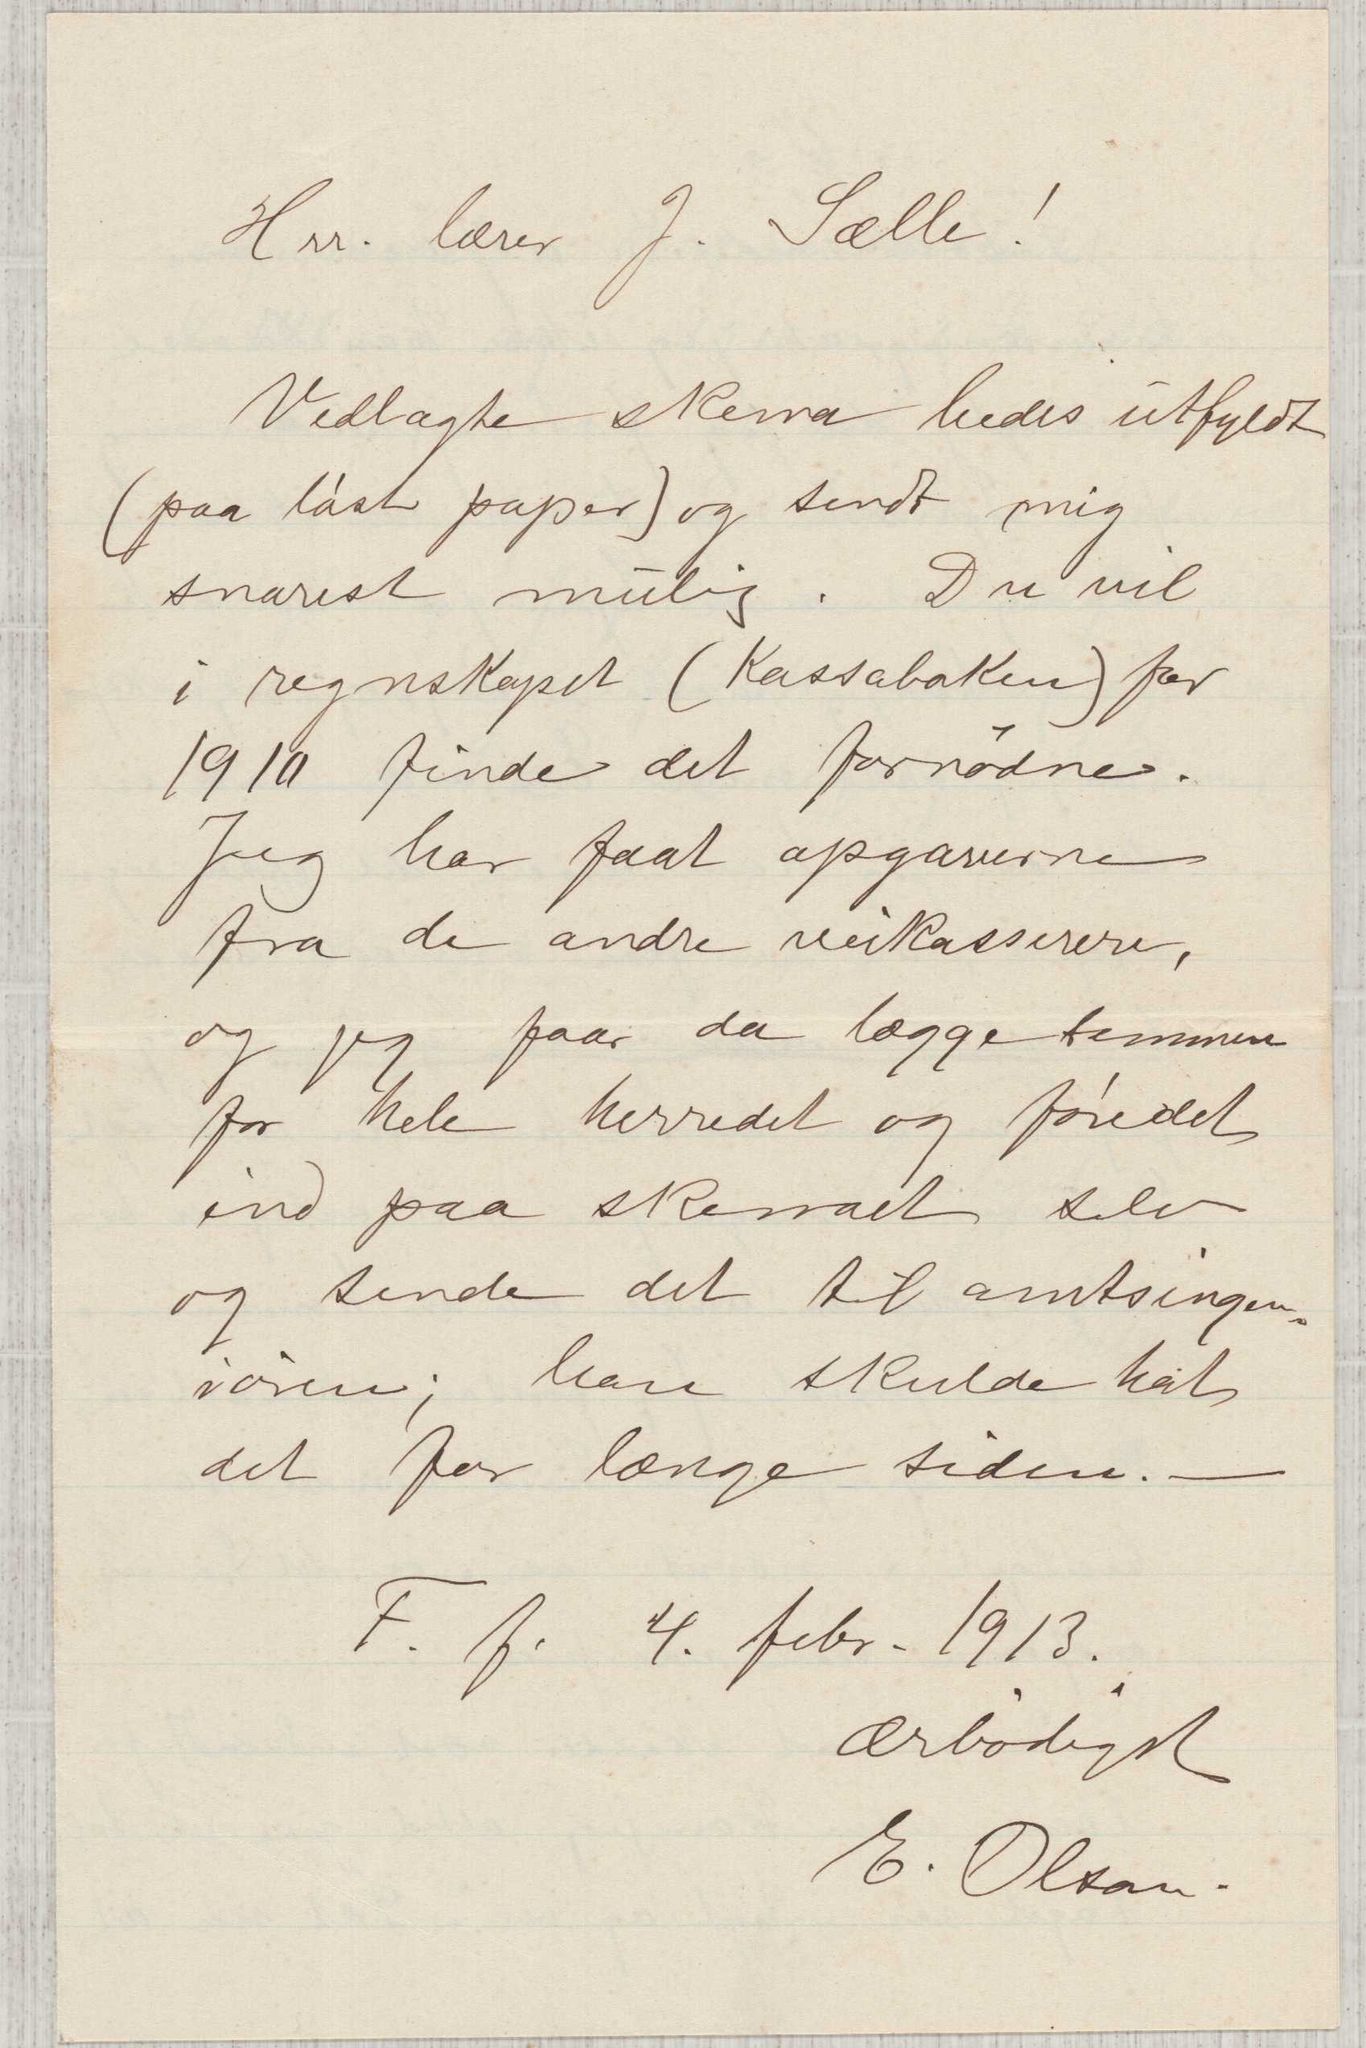 Hrr. lærer J. Sælle!
Vedlagte skema bedes utfyldt
(paa löst paper) og sendt mig
snarest mulig. Du vil
i regnskapet (Kassaboken) for
1910 finde det fornödne.
Jeg har faat opgaverne
fra de andre veikasserere,
og jeg faar da lægge sammen
for hele herredet og före det
ind paa skemaet selv
og sende det til amtsingen-
iören; han skulde hat
det for længe siden. —
F. f. 4. febr. 1913.
Ærbödigst
E. Olson.